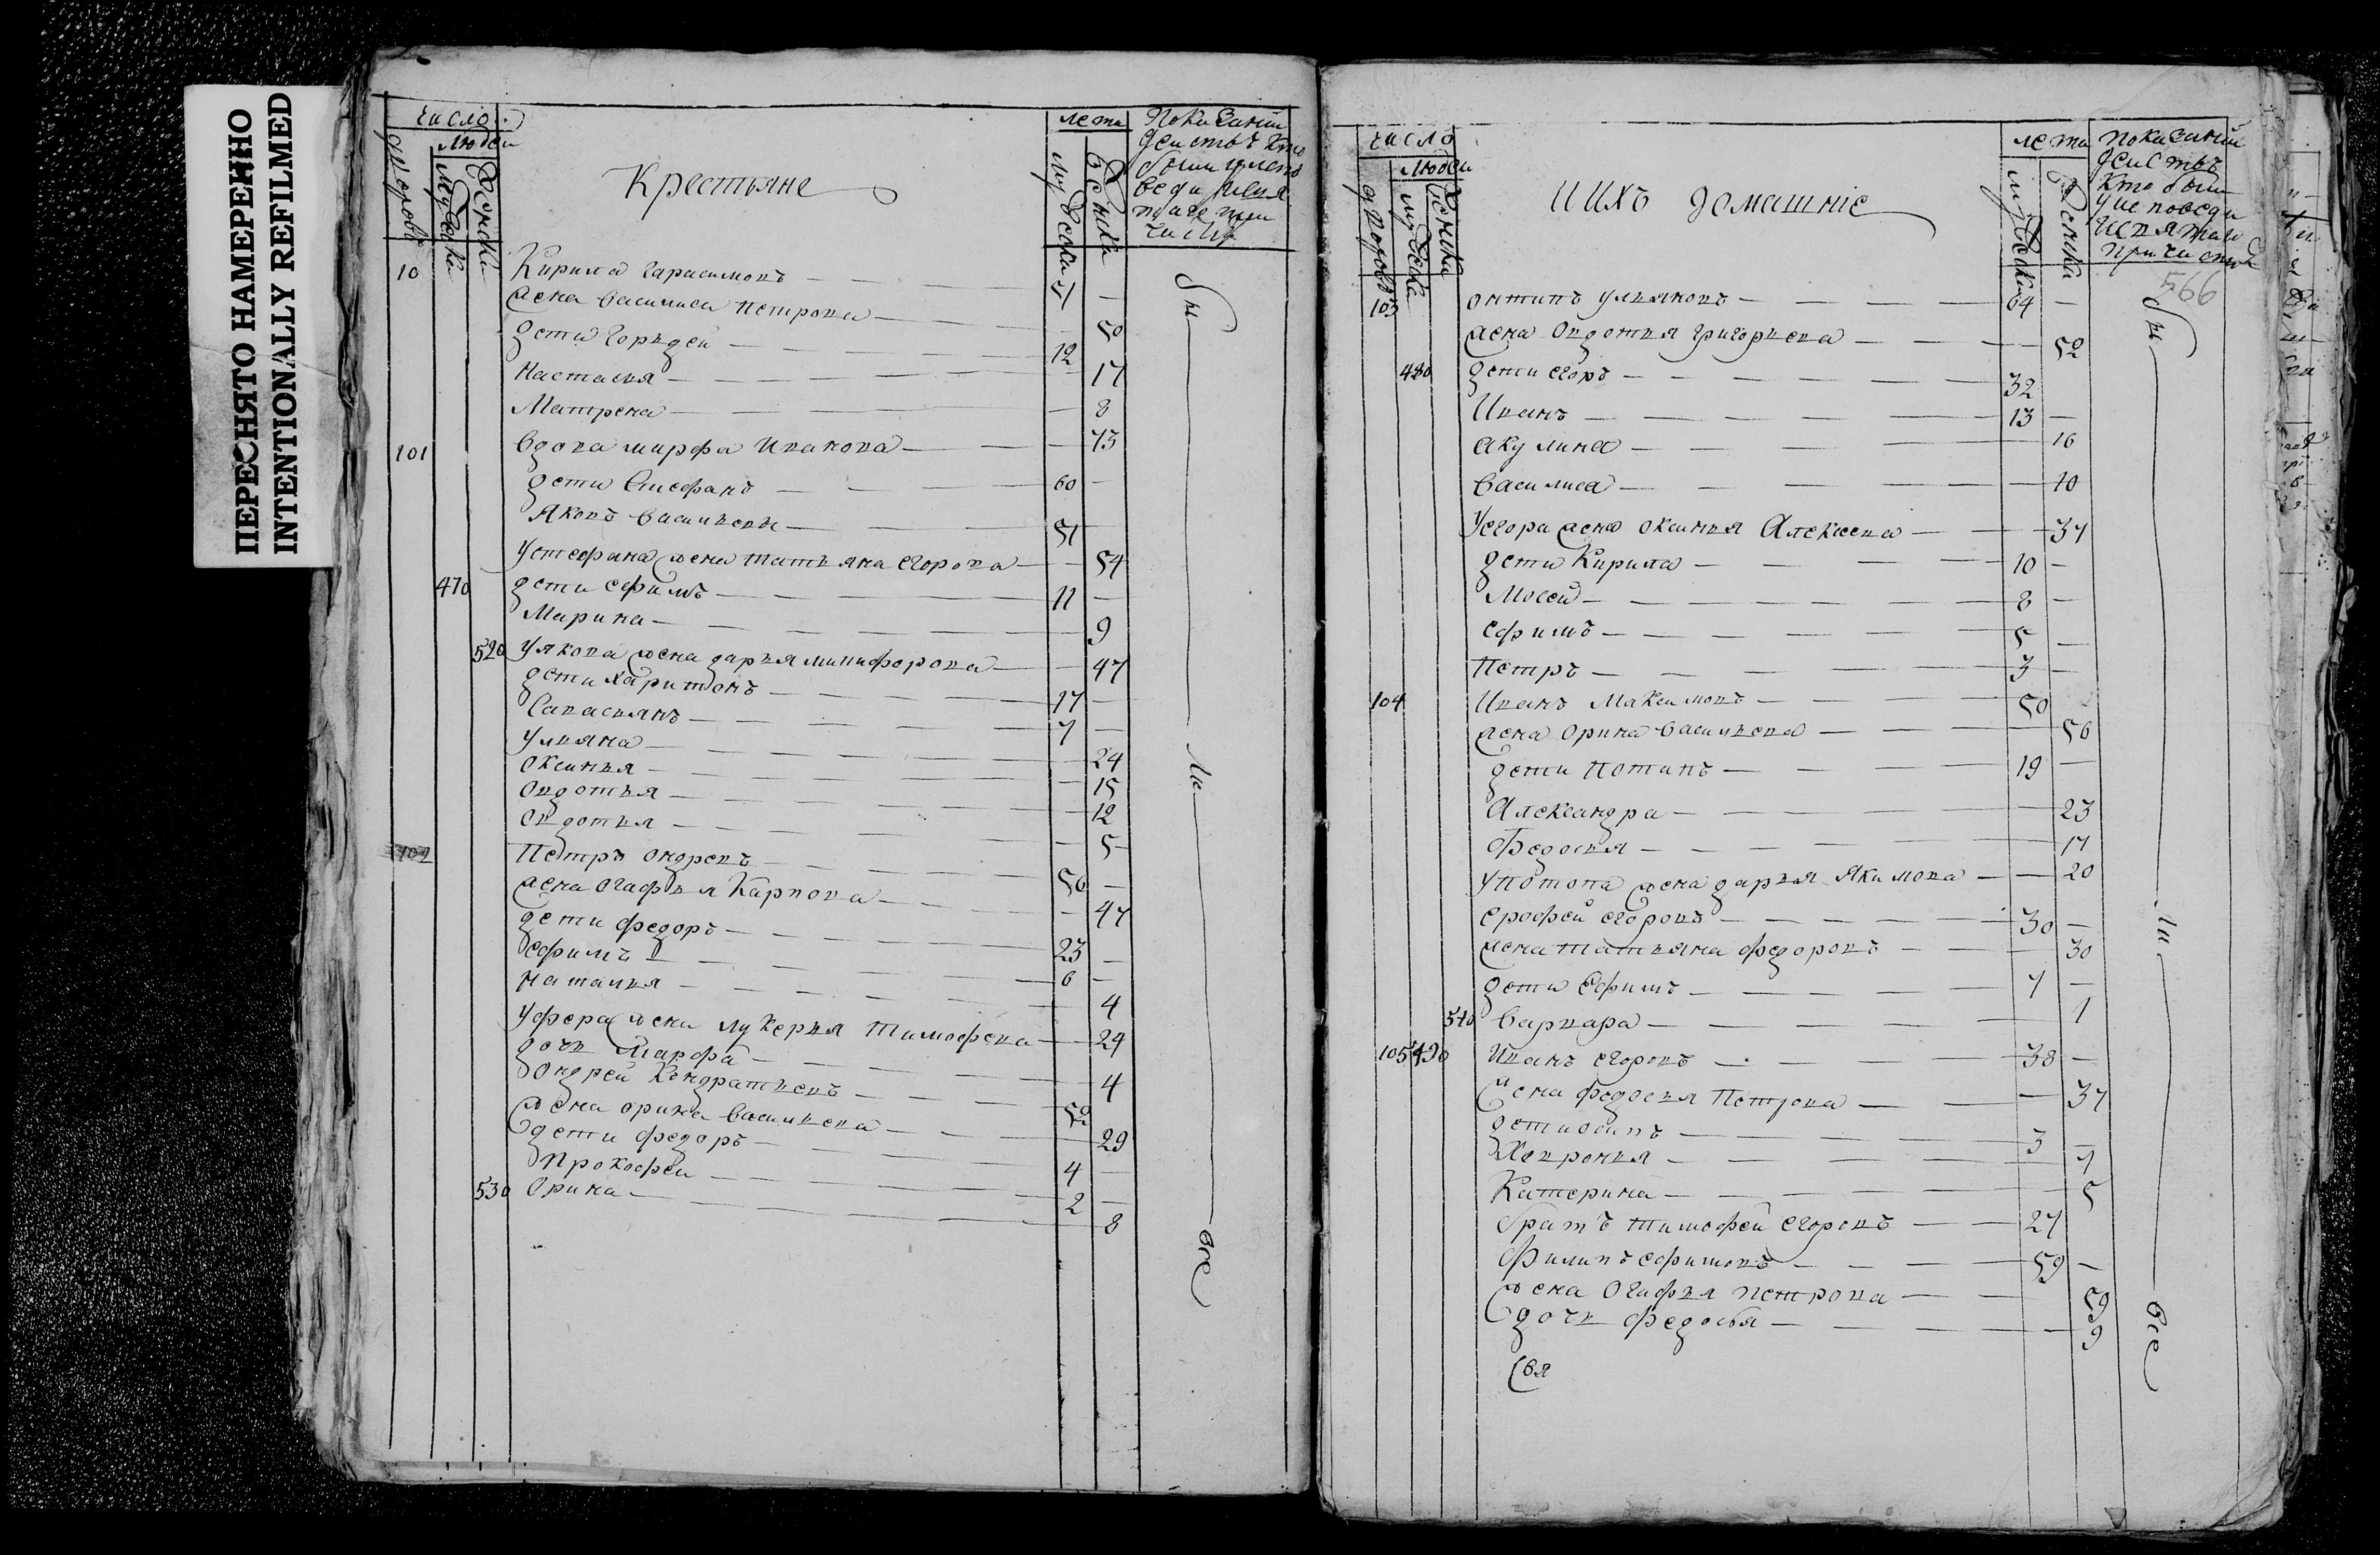 ПЕРЕСНЯТО НАМЕРЕННО
INTENTIONALLY REFILMED
число
людей
дворовъ
мужеска
женска
Крестьяне
лета
мужеска
женска
Показаний
действъ кто
были у испо
веди
10 Кирила Гарасимовъ
жена Василиса Петрова 50
дети Горьдей 12
Настасья 17
Матрена 8
101 вдова марфа Иванова 73
дети Стефанъ 60
Яковъ Васильевы 51
устефана жена татьяна Егорова 54
470 дети ефимъ 11
Марина 9
520 уякова жена дарья никифорова 47
дети харитонъ 17
Савастьянъ 7
ульяна 24
оксинья 15
овдотья 12
овдотья 5
102 Петръ ондревъ 56
жена огафья Карпова 47
дети федоръ 23
ефимъ 6
наталья 4
уфедра жена лукерья тимофева 24
дочь Марфа 4
ондрей Кондратьевъ 52
жена орина васильева 29
дети федоръ 4
прокофей 2
530 Орина 8
бы
ли
все
число
людей
дворовъ
мужеска
женска
И ИХЪ домашніе
лета
мужеска
женска
показаний
действъ
кто были
у исповеди
причастія
566
103 онтипъ ульяновъ 64
жена овдотья григорьева 52
480 дети егоръ 32
Иванъ 13
акулина 16
василиса 10
уегора жена оксинья Алексеева 37
дети Кирила 10
Мосей 8
ефимъ 5
Петръ 3
104 Иванъ Максимовъ 50
жена орина васильева 56
дети потапъ 19
Александра 23
Федосья 17
употапа жена дарья Якимова 20
ерофей егоровъ 30
жена татьяна федоровъ 30
дети Ефимъ 7
540 варвара 1
105 490 Иванъ егоровъ 38
жена федосья Петрова 37
дети осипъ 3
Хевронья 7
Катерина 5
братъ тимофей егоровъ 27
филипъ ефимовъ 59
жена огафья петрова 59
дочь федосья 9
бы
ли
все